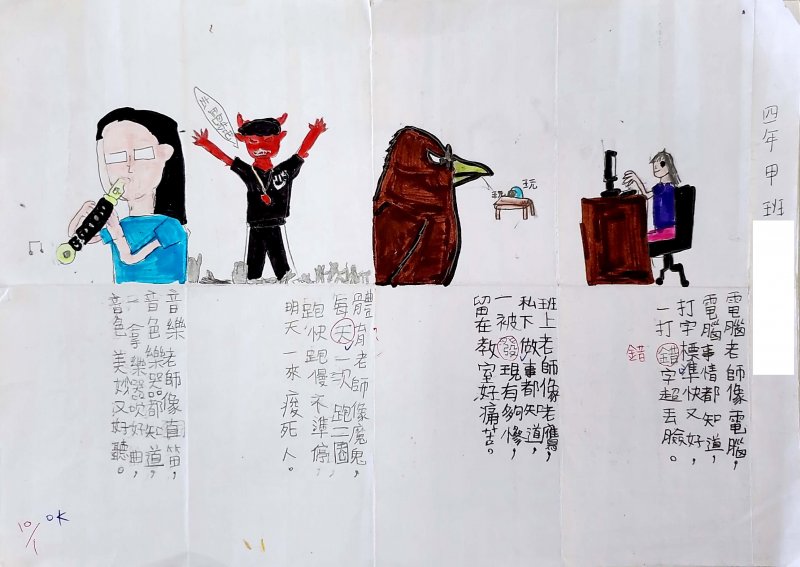 四年甲班
電腦老師像電腦，
電腦事情都知道，
打字標準快又好，
一打錯字超丟臉。
錯
玩
玩
班上老師像老鷹，
私下做事都知道，
一被發現有夠慘，
留在教室好痛苦。
去跑步
體育老師像魔鬼，
每天一次跑二圈，
跑快跑慢不準停，
明天一來痠死人。
音樂老師像直笛，
音色樂器都知道，
一拿樂器吹好曲，
音色美妙又好聽。
OK
10/1